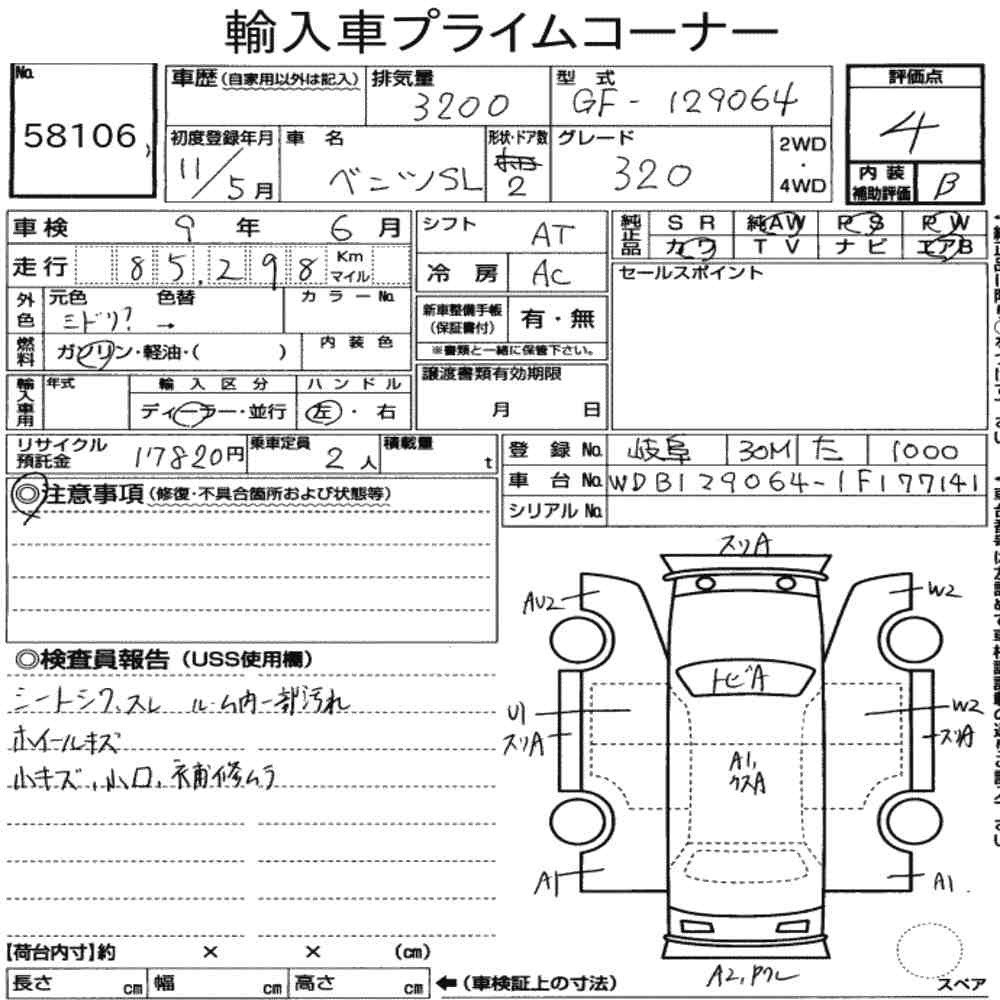 輸入車プライムコーナー
No. 58106
車歴(自家用以外は記入)
排気量 3200
型式 GF-129064
評価点 4
初度登録年月 11/5月
車名 ベンツSL
形状・ドア数 2
グレード 320
2WD・4WD
内装補助評価 B
車検 9年 6月
シフト AT
純正品 SR 純AW PS PW
カワ TV ナビ エアB
走行 85,298 Km マイル
冷房 AC
セールスポイント
外色 元色 ミドリ? → 色替 カラーNo.
新車整備手帳(保証書付) 有・無
※書類と一緒に保管下さい。
燃料 ガソリン・軽油・( )
内装色
譲渡書類有効期限 月 日
輸入車用 年式
輸入区分 ディーラー・並行
ハンドル 左・右
リサイクル預託金 17820円
乗車定員 2人
積載量 t
登録No. 岐阜 30M た 1000
車台No. WDB129064-1F177141
シリアルNo.
◎注意事項(修復・不具合箇所および状態等)
◎検査員報告(USS使用欄)
シートシワ、スレ ルーム内一部汚れ
ホイールキズ
小キズ、小凹、補修ムラ
スリA
AU2
W2
トビA
U1
スリA
W2
スリA
A1,
クスA
A1
A1.
A2,Pクレ
スペア
【荷台内寸】約 × × (cm)
長さ cm 幅 cm 高さ cm ←(車検証上の寸法)